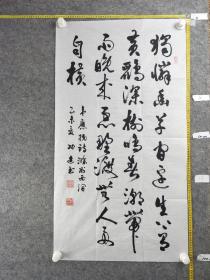 獨憐幽草澗邊生上有
黃鸝深樹鳴春潮帶
雨晚來急野渡無人舟
自橫
韋應物詩滁州西澗
乙未夏